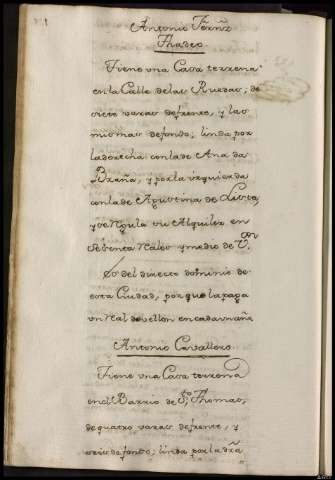 Antonio Fernz
Thadeo
Tiene vna Casa terrena
en la Calle delas Ruedas; de
siete varas defrente, y las
mismas defondo; linda por
laderecha conlade Ana da
Braña, y porla izquierda
conlade Agustina de
y se regula su Alquiler en
setenta reales y medio de Von
Es del directo dominio de
esta Ciudad, por que la paga
vn real devellon encadaun año
Antonio Cavallero
Tiene vna Casa terrena
enel Barrio de Sto Thomas,
de quatro varas defrente, y
seis defondo; linda porladra